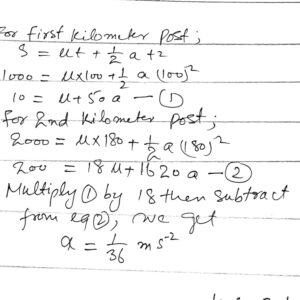 For first kilometer post;
S = ut + 1/2 a t2
1000 = u×100 + 1/2 a (100)²
10 = u + 50 a — ①
for 2nd kilometer post;
2000 = u×180 + 1/2 a (180)²
200 = 18 u + 1620 a — ②
Multiply ① by 18 then subtract
from eq ②, we get
a = 1/36 ms⁻²